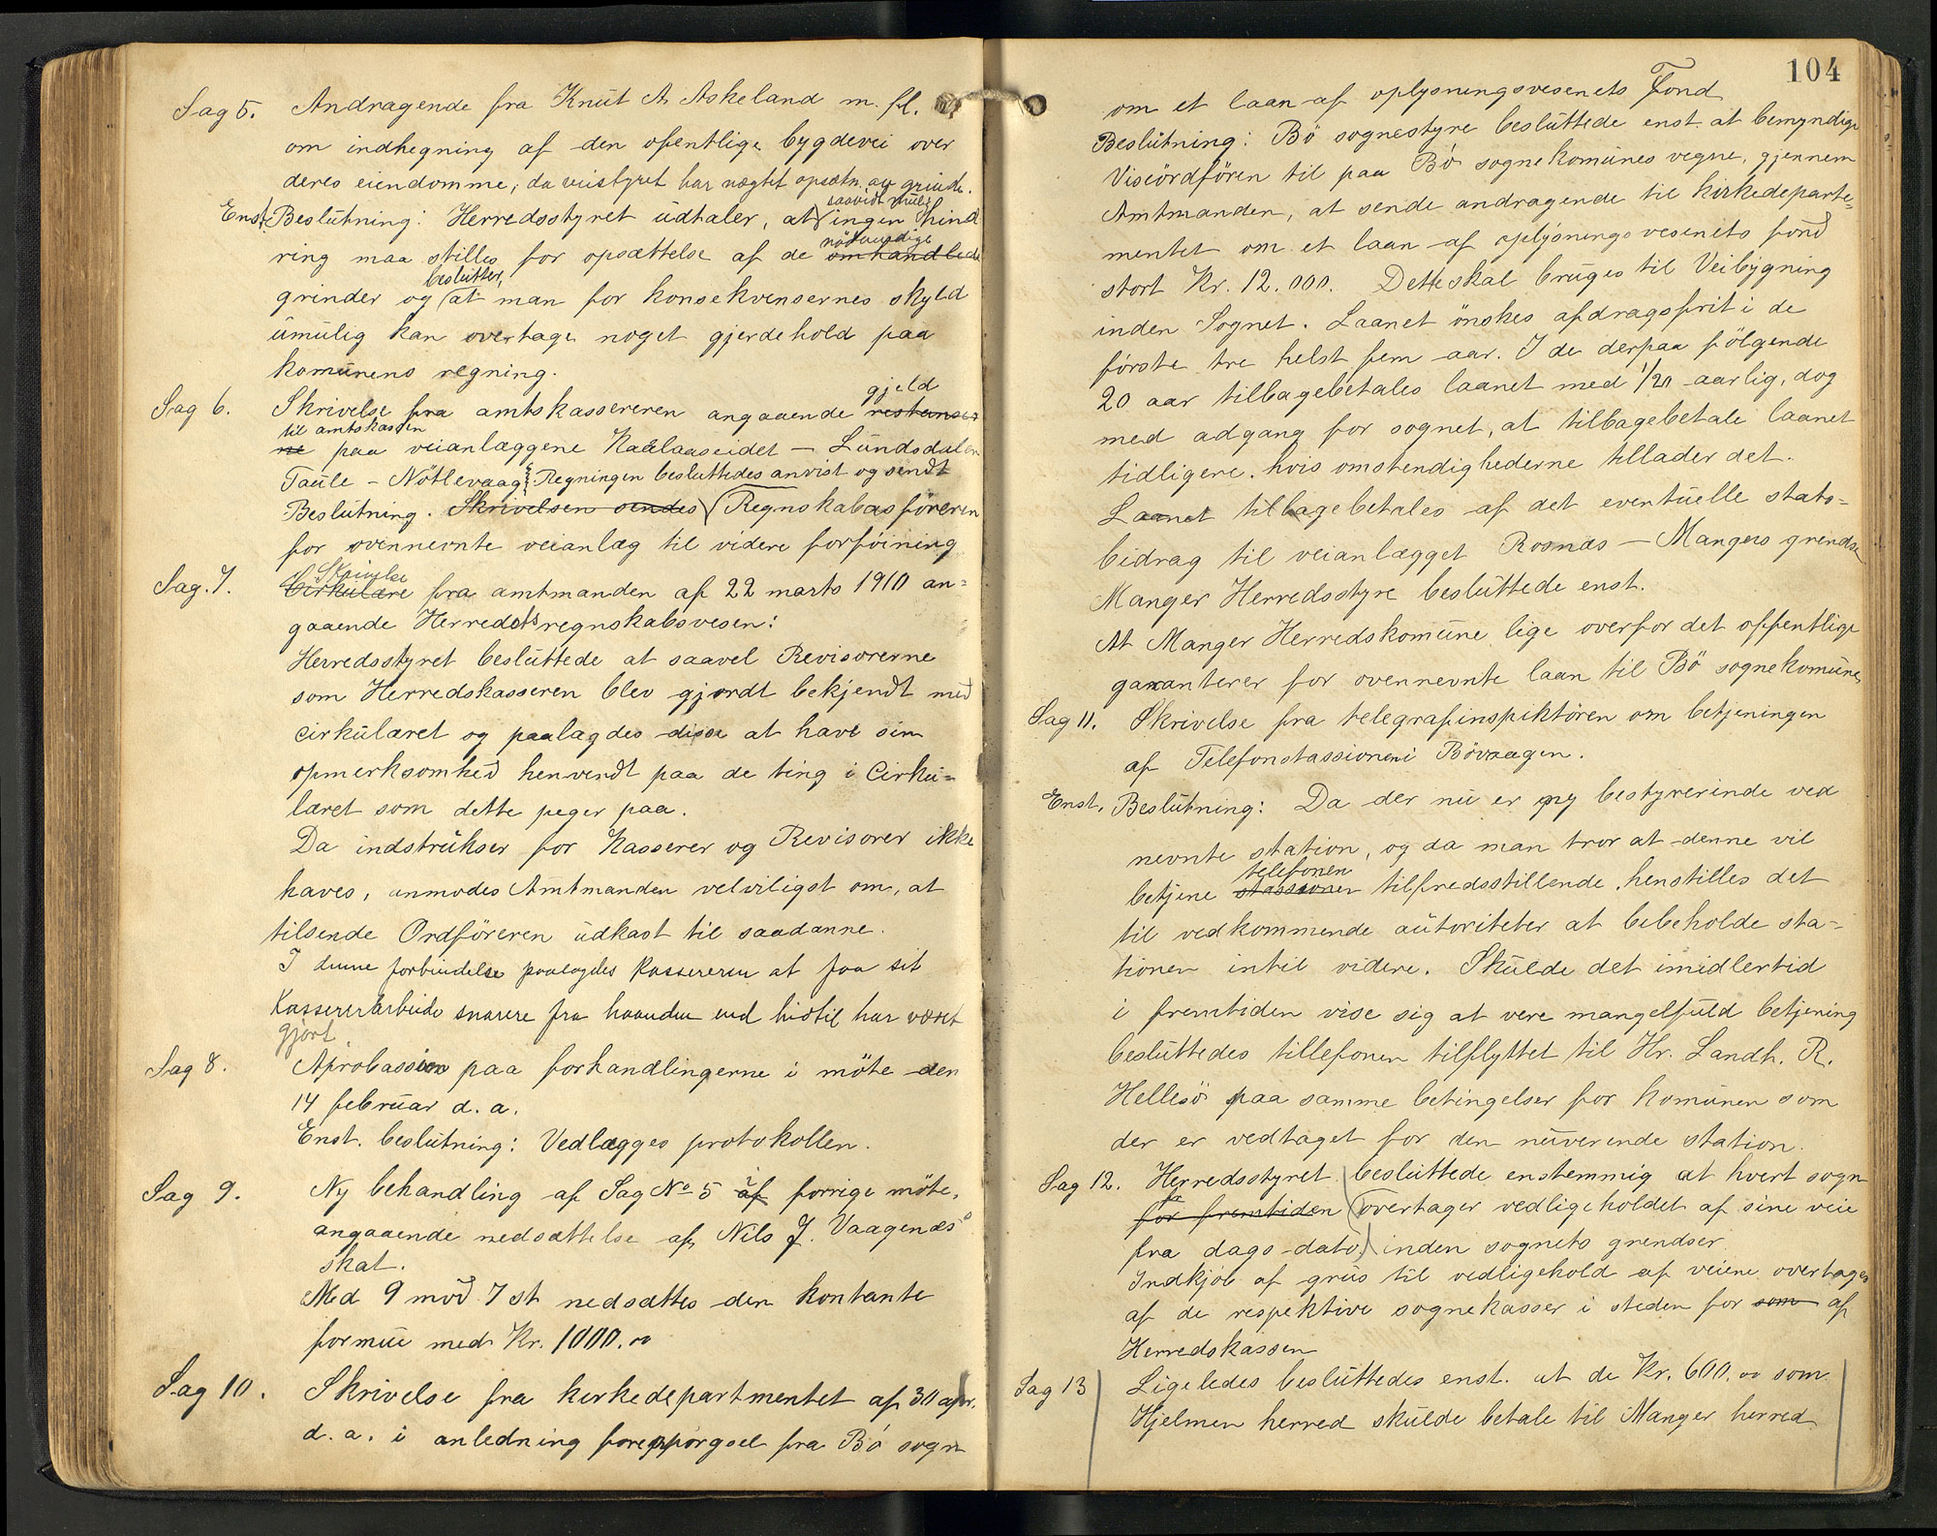 Sag 5. Andragende fra Knut A. Askeland m. fl.
om indhegning af den ofentlige bygdevei over
deres eiendomme, da veistyret har nægtet opsætn. av grinde.
saavidt mulig
Enst. Beslutning: Herredsstyret udtaler, at ingen hind
nödvendige
ring maa stilles for opsættelse af de omhandlede
beslutter,
grinder og at man for konsekvensernes skyld
umulig kan overtage noget gjerdehold paa
komunens regning.
gjeld
Sag 6. Skrivelse fra amtskassereren angaaende restanser
til amtskassen
ne paa veianlæggene Kaalaaseidet — Lundsdalen
Taule - Nötlevaag. Regningen besluttedes anvist og sendt
Beslutning. Skrivelsen sendes Regnskabasföreren
for ovennevnte veianlæg til videre forföining
Skrivelse
Sag. 7. Cirkulære fra amtmanden af 22 marts 1910 an=
gaaende Herredets regnskabsvesen:
Herredsstyret besluttede at saavel Revisorerne
som Herredskasseren blev gjordt bekjendt med
cirkulæret og paalagdes disse at have sin
opmerksomhed henvendt paa de ting i Cirku=
læret som dette peger paa.
Da indstrukser for Kasserer og Revisorer ikke
haves, anmodes Amtmanden velviligst om, at
tilsende Ordföreren udkast til saadanne.
I denne forbindelse paalagdes Kassereren at faa sit
Kassererarbeide snarere fra haanden end hidtil har været
gjort
Sag 8. Aprobassion paa forhandlingerne i möte den
14 februar d. a.
Enst. beslutning: Vedlægges protokollen.
Sag 9. Ny behandling af Sag No 5 af i forrige möte,
angaaende nedsættelse af Nils J. Vaagenæs
skat.
Med 9 mod 7 st nedsættes den kontante
formue med Kr. 1000.00
Sag 10. Skrivelse fra kirkedepartmentet af 30 apr.
d. a. i anledning forespörgsel fra Bö sogn
104
om et laan af oplysningsvesenets Fond
Beslutning: Bö sognestyre besluttede enst. at bemyndige
Viseordfören til paa Bö sognekomunes vegne, gjennem
Amtmanden, at sende andragende til kirkedeparte=
mentet om et laan af oplysningsvesenets fond
stort Kr. 12.000. Dette skal bruges til Veibygning
inden Sognet. Laanet önskes afdragsfrit i de
förste tre helst fem aar. I de derpaa fölgende
20 aar tilbagebetales laanet med 1/20 aarlig, dog
med adgang for sognet, at tilbagebetale laanet
tidligere. hvis omstendighederne tillader det.
Laanet tilbagebetales af det eventuelle stats=
bidrag til veianlægget Rosnæs — Mangers grendse
Manger Herredsstyre besluttede enst.
At Manger Herredskomune lige overfor det offentlige
garanterer for ovennevnte laan til Bö sognekomune,
Sag 11. Skrivelse fra telegrafinspiktören om betjeningen
af Telefonstassionen i Bövaagen.
Enst. Beslutning: Da der nu er ny bestyrerinde ved
nevnte station, og da man tror at denne vil
telefonen
betjene stassionen tilfredsstillende, henstilles det
til vedkommende autoriteter at bebeholde sta=
tionen intil videre. Skulde det imidlertid
i fremtiden vise sig at vere mangelfuld betjening
besluttedes tillefonen tilflyttet til Hr. Landh. R.
Hellesö paa samme betingelser for komunen som
der er vedtaget for den nuverende station.
Sag 12. Herredsstyret besluttede enstemmig at hvert sogn
for fremtiden overtager vedligeholdet af sine veie
fra dags-dato, inden sognets grendser
Indkjöb af grus til vedligehold af veiene overtages
af de respektive sognekasser i steden for som af
Herredskassen
Sag 13 Ligeledes besluttedes enst. at de Kr. 600.00 som
Hjelmen herred skulde betale til Manger herred